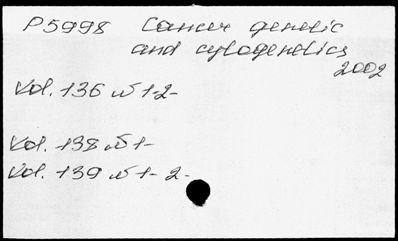 P5998 Cancer genetic
and cytogenetics
2002
Vol. 136 № 1-2-
Vol. 138 № 1-
Vol. 139 № 1- 2-